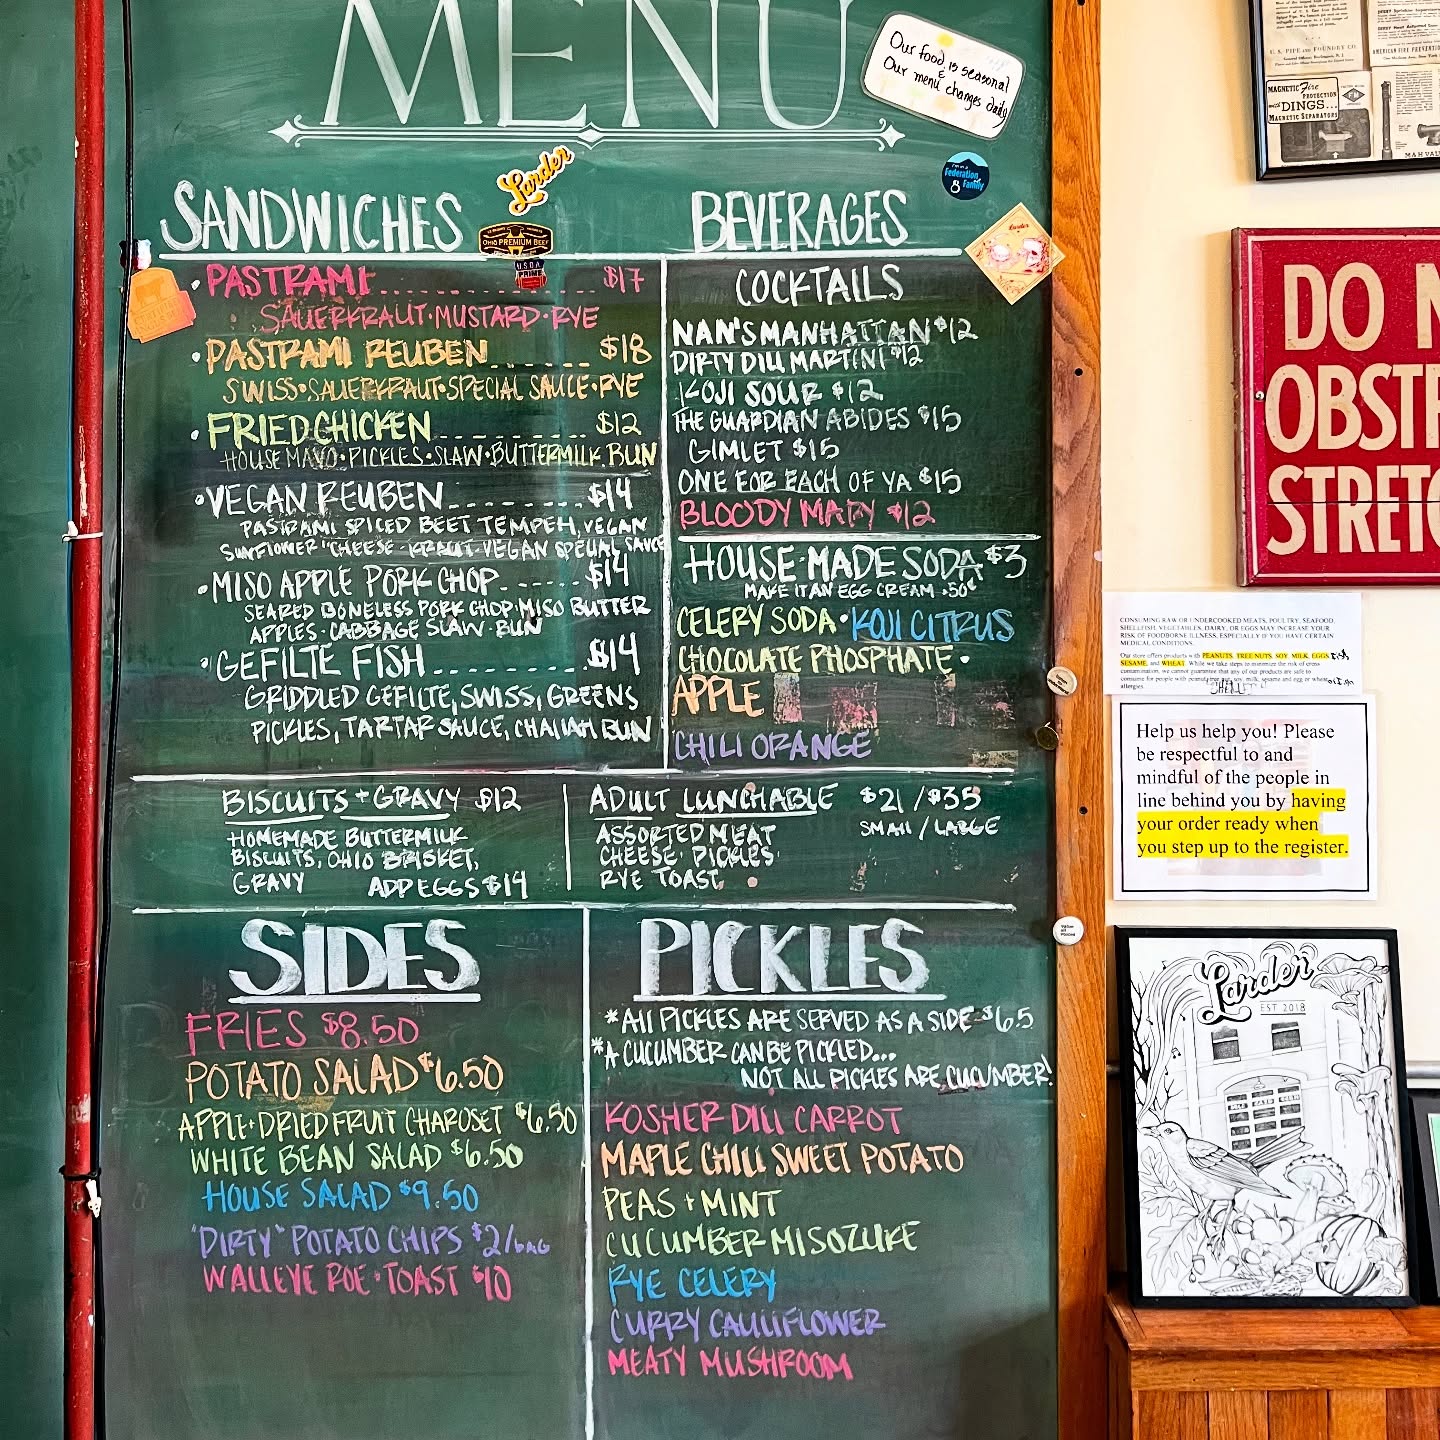 MENU
Our food is seasonal
&
Our menu changes daily
Larder
I'm in a
Federation
Family
SANDWICHES
OHIO PREMIUM BEEF
USDA
PRIME
PASTRAMI $17
SAUERKRAUT·MUSTARD·RYE
PASTRAMI REUBEN $18
SWISS·SAUERKRAUT·SPECIAL SAUCE·RYE
FRIED CHICKEN $12
HOUSE MAYO·PICKLES·SLAW·BUTTERMILK BUN
VEGAN REUBEN $14
PASTRAMI SPICED BEET TEMPEH, VEGAN
SUNFLOWER "CHEESE·KRAUT·VEGAN SPECIAL SAUCE
MISO APPLE PORK CHOP $14
SEARED BONELESS PORK CHOP·MISO BUTTER
APPLES·CABBAGE SLAW·BUN
GEFILTE FISH $14
GRIDDLED GEFILTE, SWISS, GREENS
PICKLES, TARTAR SAUCE, CHALLAH BUN
BEVERAGES
COCKTAILS
NAN'S MANHATTAN $12
DIRTY DILL MARTINI $12
KOJI SOUR $12
THE GUARDIAN ABIDES $15
GIMLET $15
ONE FOR EACH OF YA $15
BLOODY MARY $12
HOUSE·MADE SODA $3
MAKE IT AN EGG CREAM .50¢
CELERY SODA·KOJI CITRUS
CHOCOLATE PHOSPHATE·
APPLE
CHILI ORANGE
BISCUITS + GRAVY $12
HOMEMADE BUTTERMILK
BISCUITS, OHIO BRISKET,
GRAVY ADD EGGS $14
ADULT LUNCHABLE $21 / $35
SMALL / LARGE
ASSORTED MEAT
CHEESE·PICKLES
RYE TOAST
SIDES
FRIES $8.50
POTATO SALAD $6.50
APPLE+DRIED FRUIT CHAROSET $6.50
WHITE BEAN SALAD $6.50
HOUSE SALAD $9.50
"DIRTY" POTATO CHIPS $2/BAG
WALLEYE ROE·TOAST $10
PICKLES
*All PICKLES ARE SERVED AS A SIDE $6.5
*A CUCUMBER CAN BE PICKLED...
NOT ALL PICKLES ARE CUCUMBER!
KOSHER DILL CARROT
MAPLE CHILI SWEET POTATO
PEAS + MINT
CUCUMBER MISOZUKE
RYE CELERY
CURRY CAULIFLOWER
MEATY MUSHROOM
U. S. PIPE AND FOUNDRY CO.
MAGNETIC Fire
PROTECTION
with DINGS...
MAGNETIC SEPARATORS
DO N
OBSTR
STRETC
CONSUMING RAW OR UNDERCOOKED MEATS, POULTRY, SEAFOOD,
SHELLFISH, VEGETABLES, DAIRY, OR EGGS MAY INCREASE YOUR
RISK OF FOODBORNE ILLNESS, ESPECIALLY IF YOU HAVE CERTAIN
MEDICAL CONDITIONS.
Our store offers products with PEANUTS, TREE NUTS, SOY, MILK, EGGS
SESAME, and WHEAT. While we take steps to minimize the risk of cross
contamination, we cannot guarantee that any of our products are safe to
allergies.
Help us help you! Please
be respectful to and
mindful of the people in
line behind you by having
your order ready when
you step up to the register.
Larder
EST 2018